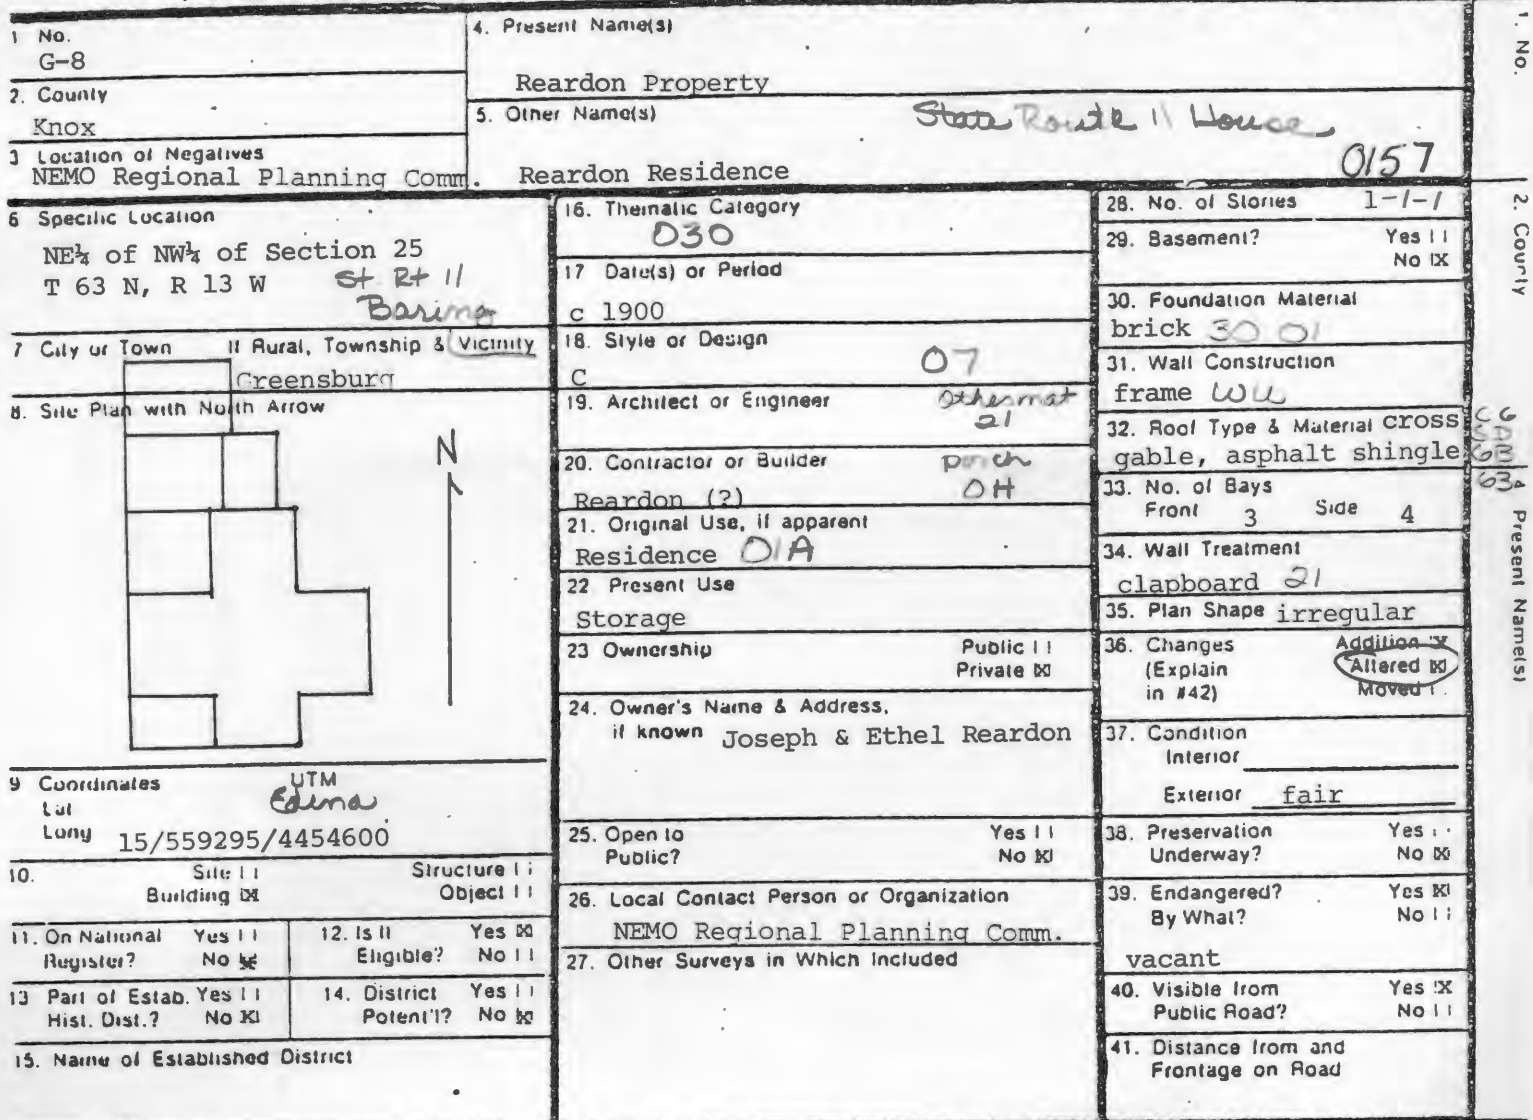 1 No.
G-8
2. County
Knox
3 Location of Negatives
NEMO Regional Planning Comm.
4. Present Name(s)
Reardon Property
5. Other Name(s)
State Route 11 House
0157
Reardon Residence
6 Specific Location
NE¼ of NW¼ of Section 25
T 63 N, R 13 W St. Rt 11
Baring
7 City or Town If Rural, Township & Vicinity
Greensburg
8. Site Plan with North Arrow
N
9 Coordinates UTM
Lat Edina
Long 15/559295/4454600
10. Site | | Structure | |
Building [X] Object | |
11. On National Yes | |
Register? No [X]
12. Is It Yes [X]
Eligible? No | |
13 Part of Estab. Yes | |
Hist. Dist.? No [X]
14. District Yes | |
Potent'l? No [X]
15. Name of Established District
16. Thematic Category
030
17 Date(s) or Period
c 1900
18. Style or Design
C 07
19. Architect or Engineer Other mat
21
20. Contractor or Builder porch
Reardon (?) OH
21. Original Use, if apparent
Residence 01A
22 Present Use
Storage
23 Ownership Public | |
Private [X]
24. Owner's Name & Address,
if known Joseph & Ethel Reardon
25. Open to Yes | |
Public? No [X]
26. Local Contact Person or Organization
NEMO Regional Planning Comm.
27. Other Surveys in Which Included
28. No. of Stories 1-1-1
29. Basement? Yes | |
No [X]
30. Foundation Material
brick 30 01
31. Wall Construction
frame WU
32. Roof Type & Material cross
gable, asphalt shingle
CG
GB
63
33. No. of Bays
Front 3 Side 4
34. Wall Treatment
clapboard 21
35. Plan Shape irregular
36. Changes Addition [X]
(Explain Altered [X]
in #42) Moved | |
37. Condition
Interior
Exterior fair
38. Preservation Yes | |
Underway? No [X]
39. Endangered? Yes [X]
By What? No | |
vacant
40. Visible from Yes [X]
Public Road? No | |
41. Distance from and
Frontage on Road
1. No.
2. County
4 Present Name(s)